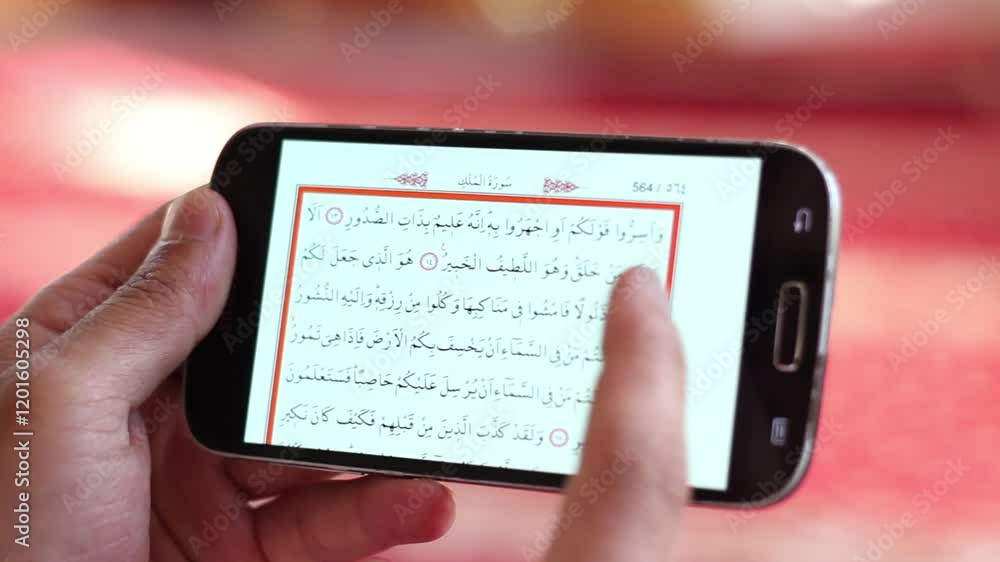 سُورَةُ المُلْكِ
564 / ٥٦٤
وَأَسِرُّوا قَوْلَكُمْ أَوِ اجْهَرُوا بِهِ إِنَّهُ عَلِيمٌ بِذَاتِ الصُّدُورِ ١٣ أَلَا
خَلَقَ وَهُوَ اللَّطِيفُ الْخَبِيرُ ١٤ هُوَ الَّذِي جَعَلَ لَكُمُ
ذَلُولًا فَامْشُوا فِي مَنَاكِبِهَا وَكُلُوا مِنْ رِزْقِهِ وَإِلَيْهِ النُّشُورُ
مَنْ فِي السَّمَاءِ أَنْ يَخْسِفَ بِكُمُ الْأَرْضَ فَإِذَا هِيَ تَمُورُ
مَنْ فِي السَّمَاءِ أَنْ يُرْسِلَ عَلَيْكُمْ حَاصِبًا فَسَتَعْلَمُونَ
وَلَقَدْ كَذَّبَ الَّذِينَ مِنْ قَبْلِهِمْ فَكَيْفَ كَانَ نَكِيرِ
Adobe Stock
Adobe Stock | #1201605298